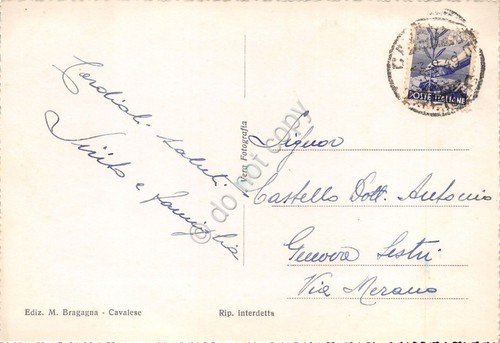 Cordiali saluti
e famiglia
Vera Fotografia
Signor
Castello Dott. Antonio
Genova Sestri
Via Merano
POSTE ITALIANE
Ediz. M. Bragagna - Cavalese
Rip. interdetta
do not copy